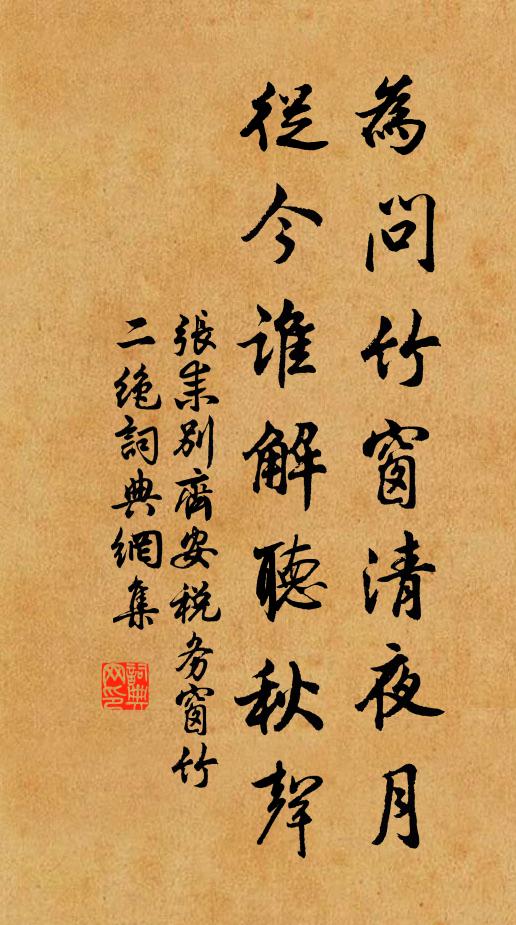 為問竹窗清夜月
從今誰解聽秋聲
張耒別齊安稅务窗竹
二絶詞典網集
詞典
网印